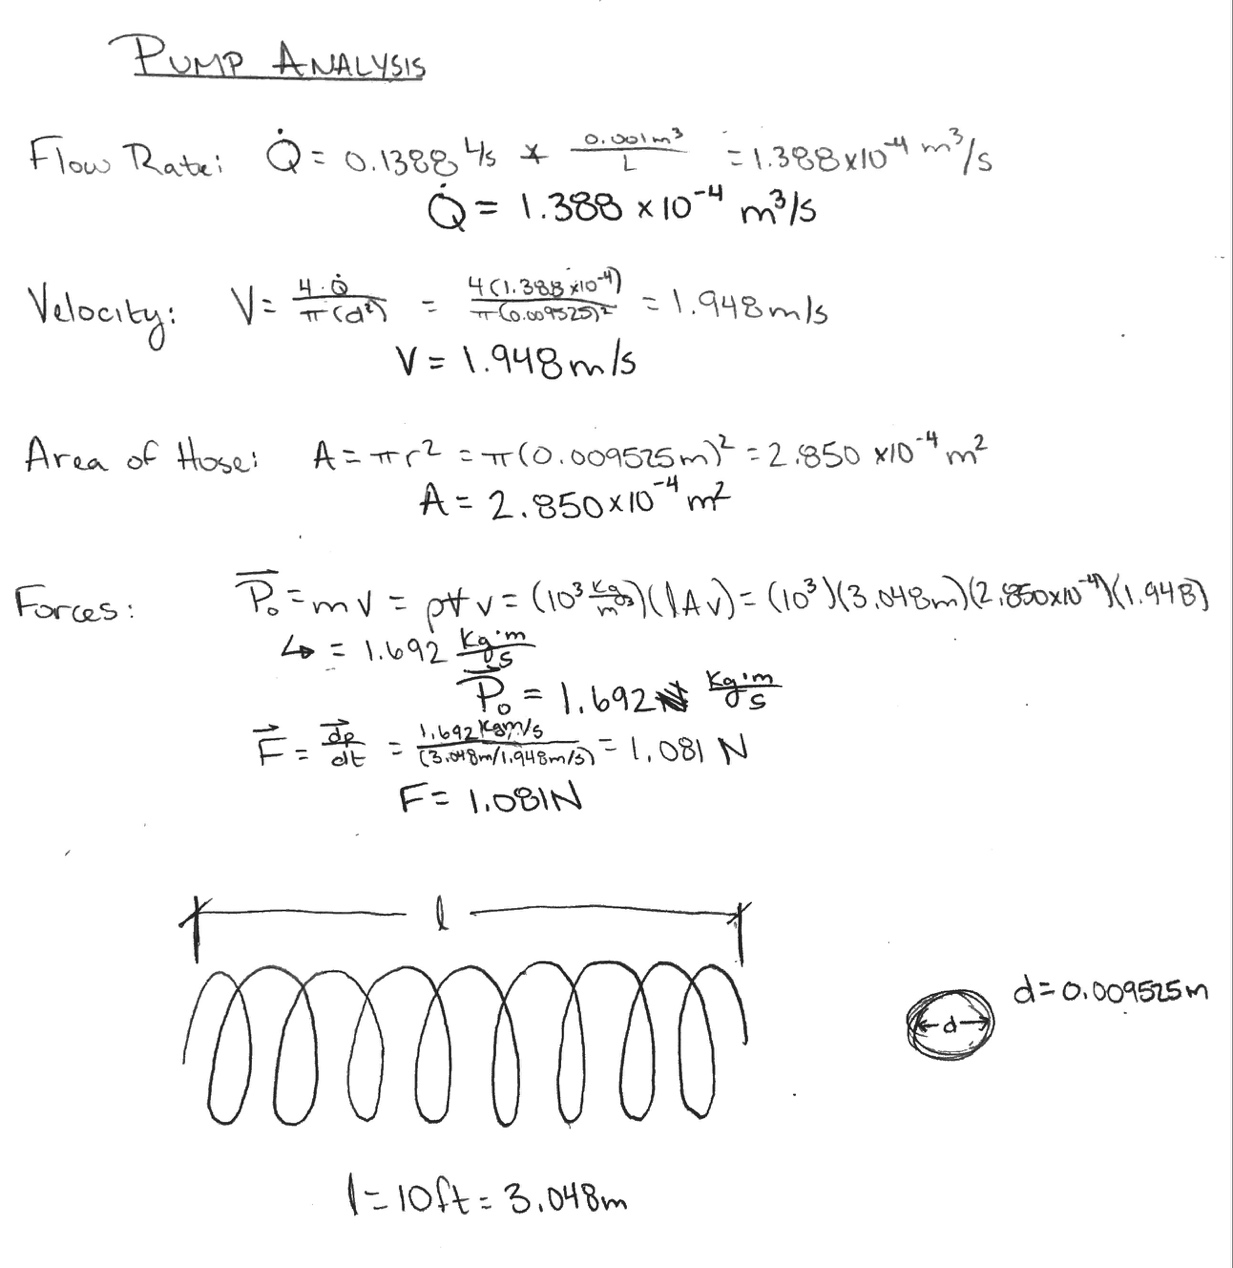 PUMP ANALYSIS
Flow Rate: Q̇ = 0.1388 L/s * 0.001m³/L = 1.388x10⁻⁴ m³/s
Q̇ = 1.388 x10⁻⁴ m³/s
Velocity: V = 4·Q̇/π(d²) = 4(1.388x10⁻⁴)/π(0.009525)² = 1.948m/s
V = 1.948m/s
Area of Hose: A = πr² = π(0.009525m)² = 2.850 x10⁻⁴m²
A = 2.850x10⁻⁴m²
Forces: P⃗₀ = mv = ρV̶v = (10³ kg/m³)(lAv) = (10³)(3.048m)(2.850x10⁻⁴)(1.948)
↳ = 1.692 kg·m/s
P⃗₀ = 1.692 kg·m/s
F⃗ = dp⃗/dt = 1.692kgm/s/(3.048m/1.948m/s) = 1.081 N
F = 1.081N
l
d=0.009525m
d
l=10ft=3.048m